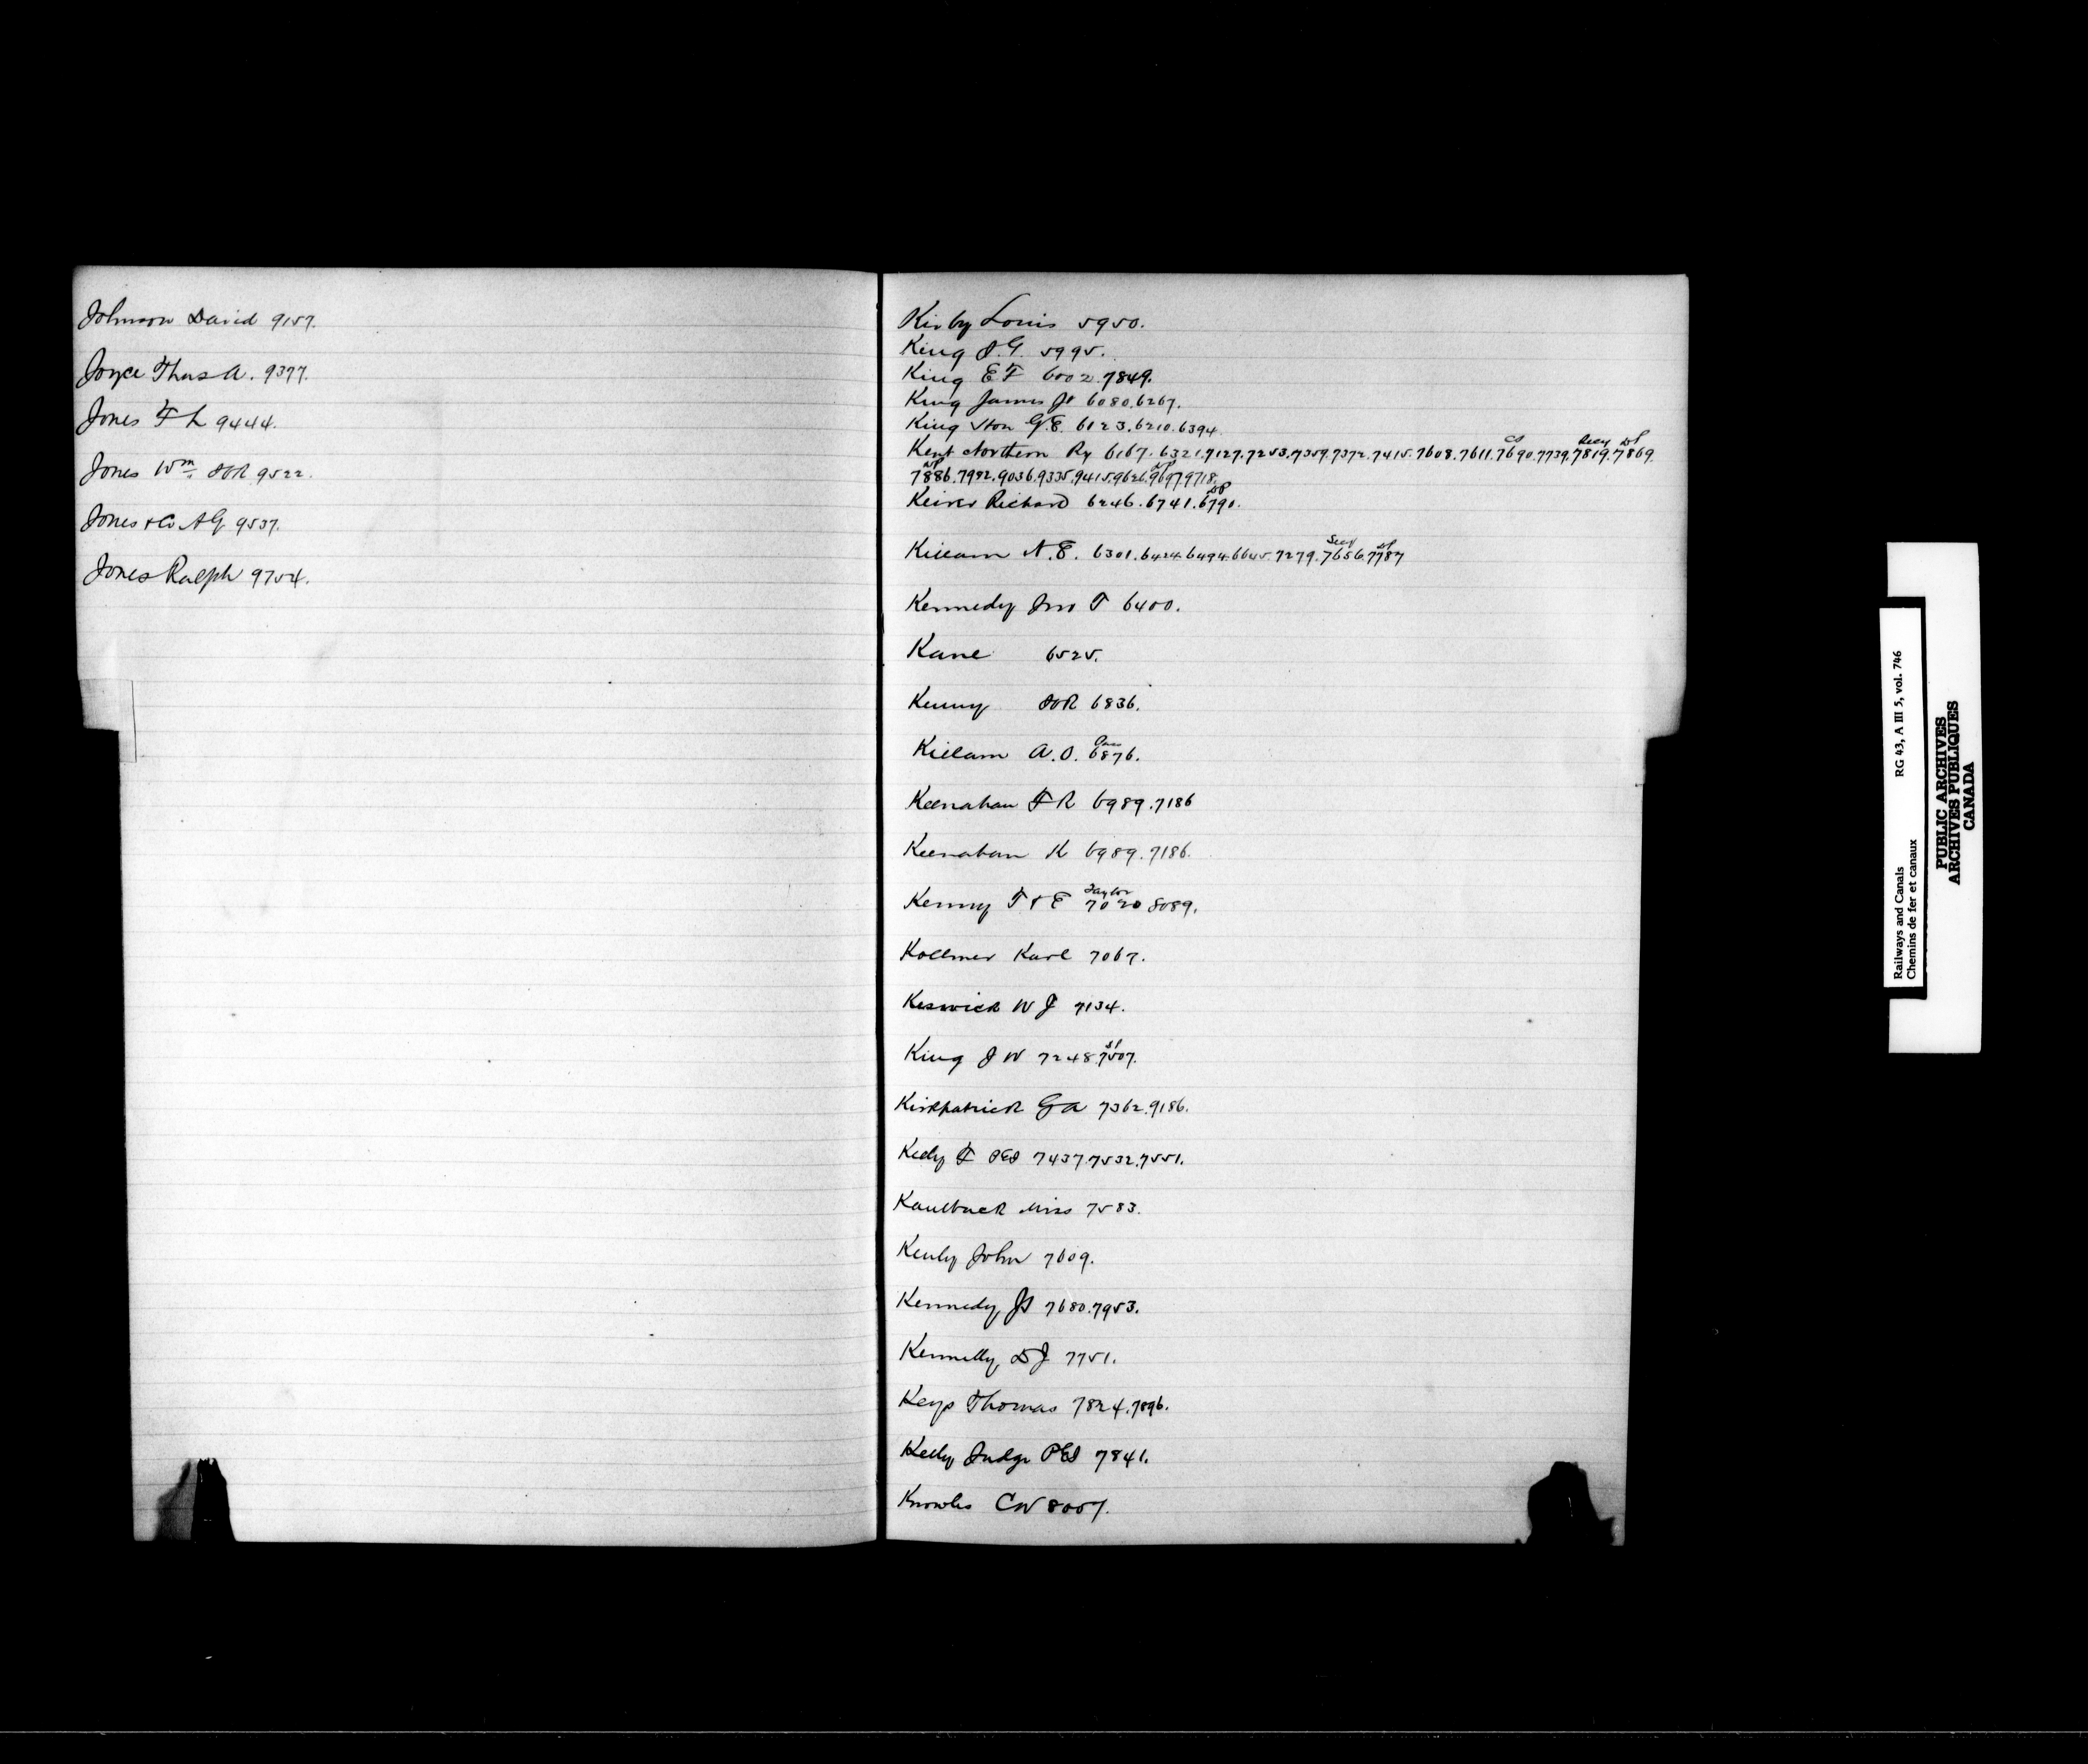 Johnson David 9157.
Joyce Thos A. 9377.
Jones F L 9444.
Jones Wm ICR 9522.
Jones & Co A G 9537.
Jones Ralph 9754.
Kirby Louis 5950.
King J.G. 5995.
King E F 6002.7849.
King James Jr 6080.6267.
King Hon G.E. 6123.6210.6394
Kent Northern Ry 6167.6321.7127.7253.7359.7372.7415.7608.7611.7690.7739.7819.7869.
7886.7982.9036.9335.9415.9626.9697.9718.
Keiver Richard 6246.6741.6790.
Killam N.E. 6301.6424.6494.6645.7279.7656.7787
Kennedy Jno T 6400.
Kane 6525.
Kenny ICR 6836.
Killam A.O. 6876.
Keenahan F R 6989.7186
Keenahan K 6989.7186.
Kenny T & E Taylor 7020 8089.
Kollmer Karl 7067.
Keswick W J 7134.
King J W 7248.7507.
Kirkpatrick G A 7362.9186.
Kelly F PEI 7437.7532.7551.
Kaulback Miss 7583.
Kenly John 7609.
Kennedy, Js 7680.7953.
Kennelly, D J 7751.
Keys Thomas 7824.7896.
Kelly Judge PEI 7841.
Knowles C W 8007.
Railways and Canals RG 43, A III 5, vol. 746
Chemins de fer et canaux
PUBLIC ARCHIVES
ARCHIVES PUBLIQUES
CANADA